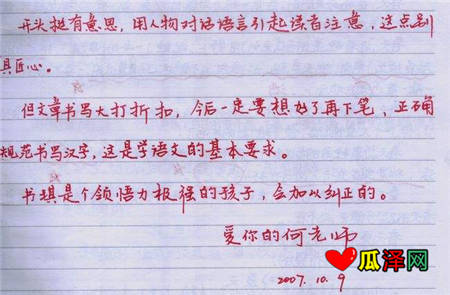 开头挺有意思，用人物对话语言引起读者注意，这点别
具匠心。
但文章书写大打折扣，今后一定要想好了再下笔，正确
规范书写汉字，这是学语文的基本要求。
书琪是个领悟力极强的孩子，会加以纠正的。
爱你的何老师
瓜泽网
2007.10.9